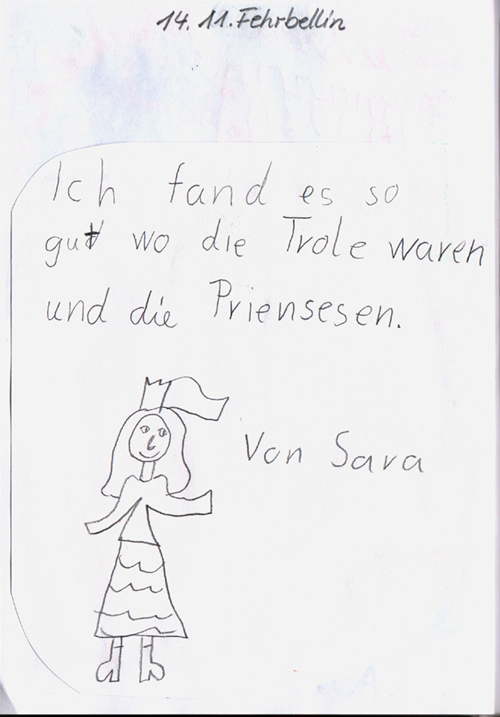 14. 11. Fehrbellin
Ich fand es so
gut wo die Trole waren
und die Priensesen.
Von Sara